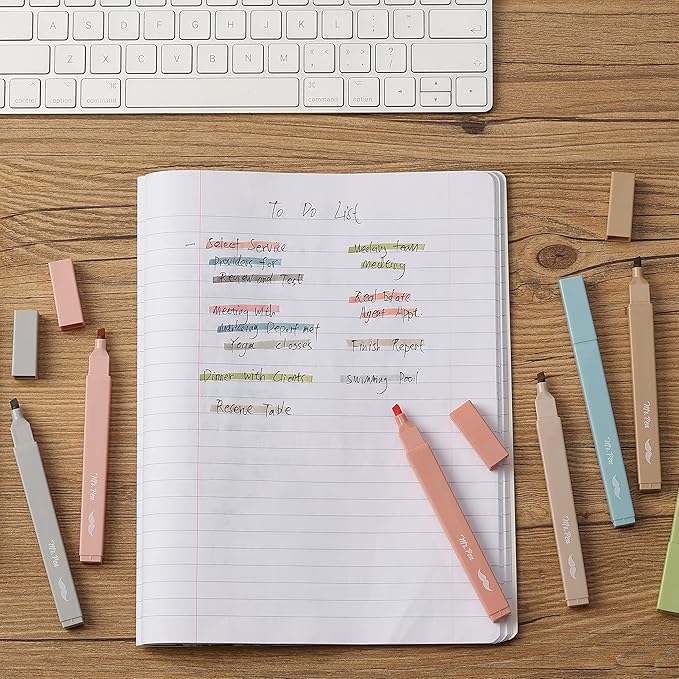 Z
X
C
V
B
N
M
control
option
command
command
option
To Do List
Select Service
Providers for
Review and Test
Meeting with
Marketing Department
Yoga classes
Dinner with Clients
Reserve Table
Weekly team
meeting
Real Estate
Agent Appt.
Finish Report
Swimming Pool
Mr. Pen
Mr. Pen
Mr. Pen
Mr. Pen
Mr. Pen
Mr. Pen